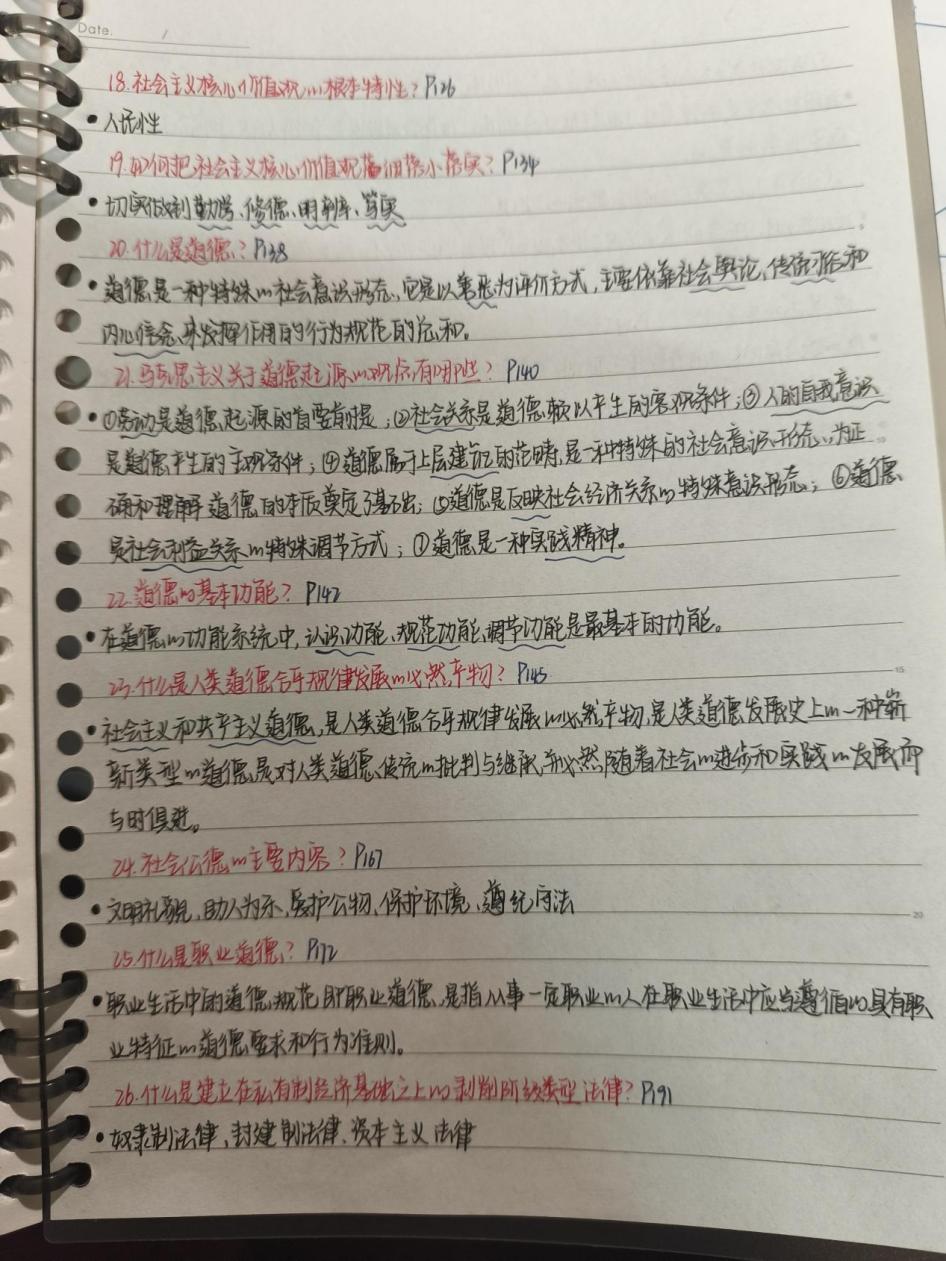 Date. /
18.社会主义核心价值观的根本特性？P126
•人民性
19.如何把社会主义核心价值观落细落小落实？P134
•切实做到勤学、修德、明辨、笃实
20.什么是道德？P138
•道德是一种特殊的社会意识形态，它是以善恶为评价方式，主要依靠社会舆论、传统习俗和
内心信念来发挥作用的行为规范的总和。
21.马克思主义关于道德起源的观点有哪些？P140
•①劳动是道德起源的首要前提；②社会关系是道德赖以产生的客观条件；③人的自我意识
是道德产生的主观条件；④道德属于上层建筑的范畴，是一种特殊的社会意识形态，为正
确和理解道德的本质奠定了基础；⑤道德是反映社会经济关系的特殊意识形态；⑥道德
是社会利益关系的特殊调节方式；⑦道德是一种实践精神。
22.道德的基本功能？P142
•在道德的功能系统中，认识功能、规范功能、调节功能是最基本的功能。
23.什么是人类道德合乎规律发展的必然产物？P145
•社会主义和共产主义道德，是人类道德合乎规律发展的必然产物，是人类道德发展史上的一种崭
新类型的道德，是对人类道德传统的批判与继承，并必然随着社会的进步和实践的发展而
与时俱进。
24.社会公德的主要内容？P167
•文明礼貌、助人为乐、爱护公物、保护环境、遵纪守法
25.什么是职业道德？P172
•职业生活中的道德规范即职业道德，是指从事一定职业的人在职业生活中应当遵循的具有职
业特征的道德要求和行为准则。
26.什么是建立在私有制经济基础之上的剥削阶级类型法律？P191
•奴隶制法律、封建制法律、资本主义法律